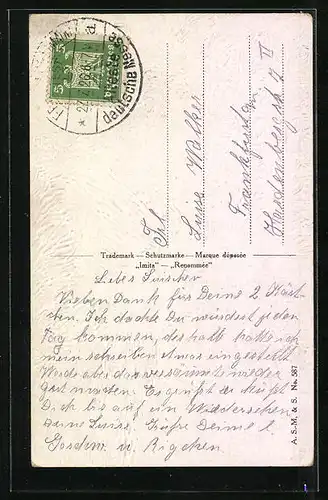 Frl
Luise Walker
Frankfurt am
Hardenbergstr 7 II
Trademark — Schutzmarke — Marque déposée
„Imita" — „Renommée"
Liebes Luischen
Vielen Dank für Deine 2 Kärt-
chen. Ich dachte Du würdest jeden
Tag kommen, deshalb hatte ich
mein schreiben etwas eingestellt.
Werde aber das versäumte wieder
gut machen. Es grüßt u. küßt
Dich bis auf ein Wiedersehen
Deine Luise. Grüße Deine l.
u.
A. S. M. & S. No. 587
Deutsche
5